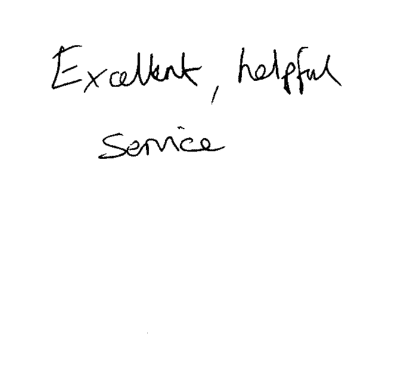 Excellent, helpful
Service